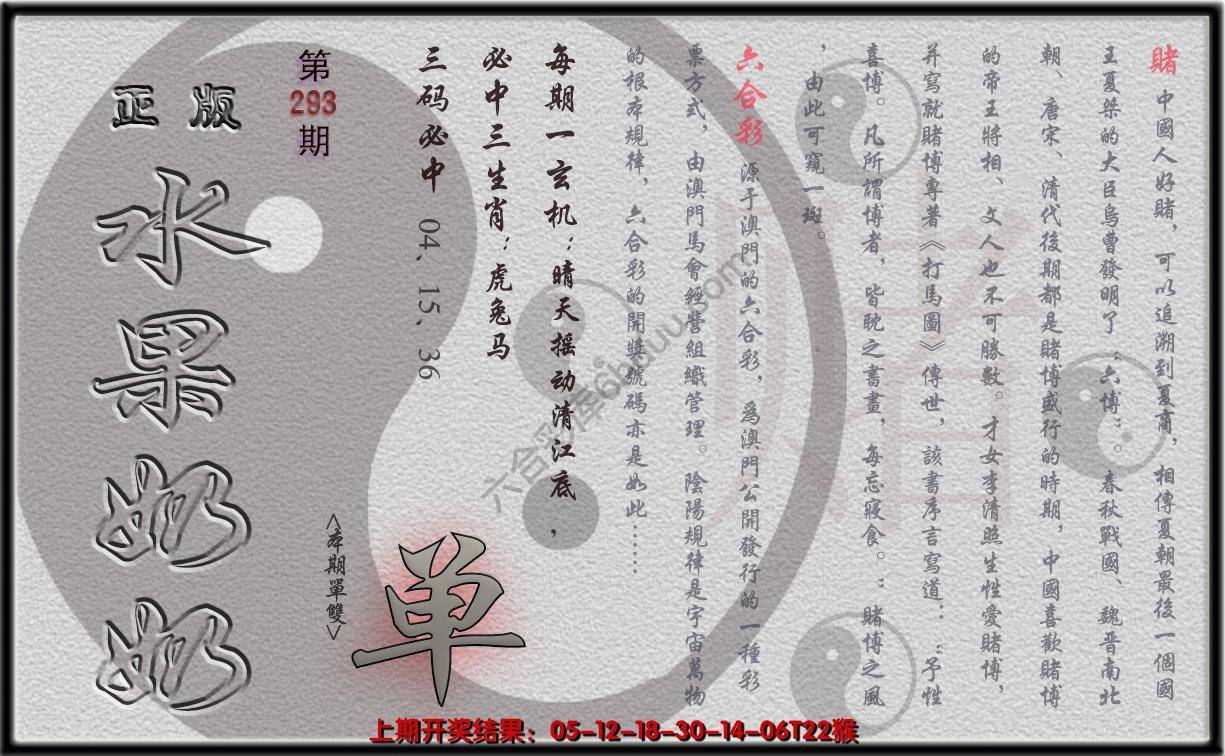 賭 中國人好賭，可以追溯到夏商，相傳夏朝最後一個國
王夏桀的大臣烏曹發明了“六博”。春秋戰國、魏晋南北
朝、唐宋、清代後期都是賭博盛行的時期，中國喜歡賭博
的帝王將相、文人也不可勝數。才女李清照生性愛賭博，
并寫就賭博專著《打馬圖》傳世，該書序言寫道：“予性
喜博。凡所謂博者，皆耽之書畫，每忘寢食。”賭博之風
，由此可窺一斑。
六合彩 源于澳門的六合彩，爲澳門公開發行的一種彩
票方式，由澳門馬會經營組織管理。陰陽規律是宇宙萬物
的根本規律，六合彩的開獎號碼亦是如此……
每期一玄机：晴天摇动清江底，
必中三生肖：虎兔马
三码必中 04、15、36
第
293
期
正版
水果奶奶
<本期單雙>
单
賭
六合彩库6hduu.com
上期开奖结果：05-12-18-30-14-06T22猴